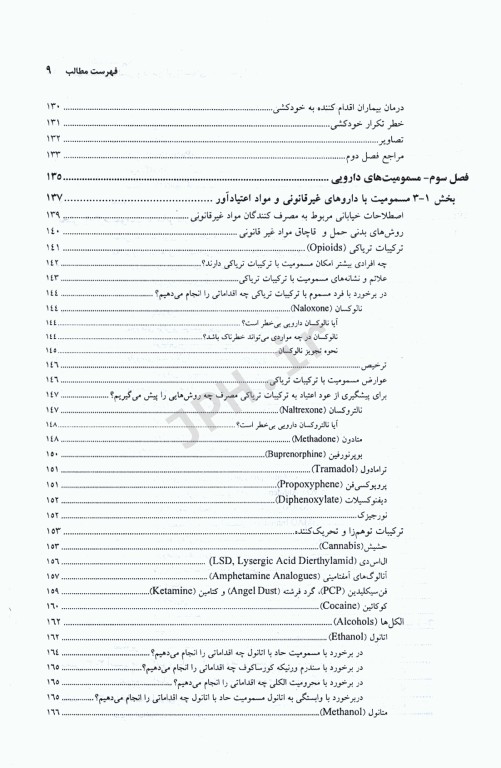 فهرست مطالب ۹
درمان بیماران اقدام کننده به خودکشی ۱۳۰
خطر تکرار خودکشی ۱۳۱
تصاویر ۱۳۲
مراجع فصل دوم ۱۳۳
فصل سوم- مسمومیت‌های دارویی ۱۳۵
بخش ۱-۳ مسمومیت با داروهای غیرقانونی و مواد اعتیادآور ۱۳۷
اصطلاحات خیابانی مربوط به مصرف کنندگان مواد غیرقانونی ۱۳۹
روش‌های بدنی حمل و قاچاق مواد غیر قانونی ۱۴۰
ترکیبات تریاکی (Opioids) ۱۴۱
چه افرادی بیشتر امکان مسمومیت با ترکیبات تریاکی دارند؟ ۱۴۲
علائم و نشانه‌های مسمومیت با ترکیبات تریاکی ۱۴۳
در برخورد با فرد مسموم با ترکیبات تریاکی چه اقداماتی را انجام می‌دهیم؟ ۱۴۴
نالوکسان (Naloxone) ۱۴۴
آیا نالوکسان دارویی بی‌خطر است؟ ۱۴۴
نالوکسان در چه مواردی می‌تواند خطرناک باشد؟ ۱۴۴
نحوه تجویز نالوکسان ۱۴۵
ترخیص ۱۴۶
عوارض مسمومیت با ترکیبات تریاکی ۱۴۶
برای پیشگیری از عود اعتیاد به ترکیبات تریاکی مصرف چه روش‌هایی را پیش می‌گیریم؟ ۱۴۷
نالتروکسان (Naltrexone) ۱۴۷
آیا نالتروکسان دارویی بی‌خطر است؟ ۱۴۸
متادون (Methadone) ۱۴۸
بوپرنورفین (Buprenorphine) ۱۵۰
ترامادول (Tramadol) ۱۵۱
پروپوکسی‌فن (Propoxyphene) ۱۵۱
دیفنوکسیلات (Diphenoxylate) ۱۵۲
نورجیزک ۱۵۲
ترکیبات توهم‌زا و تحریک‌کننده ۱۵۳
حشیش (Cannabis) ۱۵۳
ال‌اس‌دی (LSD, Lysergic Acid Dierthylamid) ۱۵۶
آنالوگ‌های آمفتامینی (Amphetamine Analogues) ۱۵۷
فن‌سیکلیدین (PCP)، گرد فرشته (Angel Dust) و کتامین (Ketamine) ۱۵۹
کوکائین (Cocaine) ۱۶۰
الکل‌ها (Alcohols) ۱۶۲
اتانول (Ethanol) ۱۶۲
در برخورد با مسمومیت حاد با اتانول چه اقداماتی را انجام می‌دهیم؟ ۱۶۴
در برخورد با سندرم ورنیکه کورساکوف چه اقداماتی را انجام می‌دهیم؟ ۱۶۵
در برخورد با محرومیت الکلی چه اقداماتی را انجام می‌دهیم؟ ۱۶۵
دربرخورد با وابستگی به اتانول مسمومیت حاد با اتانول چه اقداماتی را انجام می‌دهیم؟ ۱۶۵
متانول (Methanol) ۱۶۶
JPH.ir